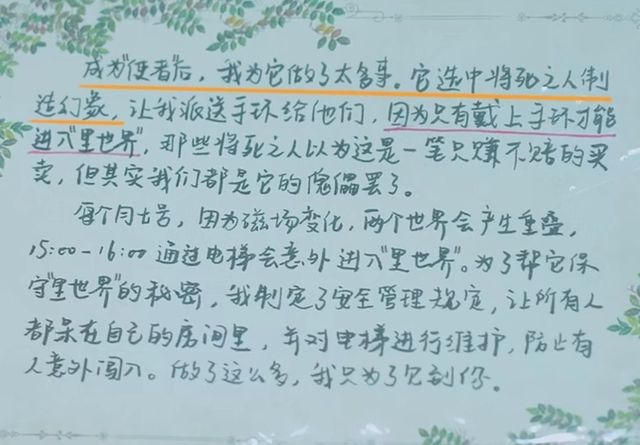 成为“使者”后，我为它做了太多事。它选中将死之人制
造幻象，让我派送手环给他们，因为只有戴上手环才能
进入“里世界”，那些将死之人以为这是一笔只赚不赔的买
卖，但其实我们都是它的傀儡罢了。
每个月七号，因为磁场变化，两个世界会产生重叠，
15:00-16:00通过电梯会意外进入“里世界”。为了帮它保
守“里世界”的秘密，我制定了安全管理规定，让所有人
都呆在自己的房间里，并对电梯进行维护，防止有
人意外闯入。做了这么多，我只为了见到你。